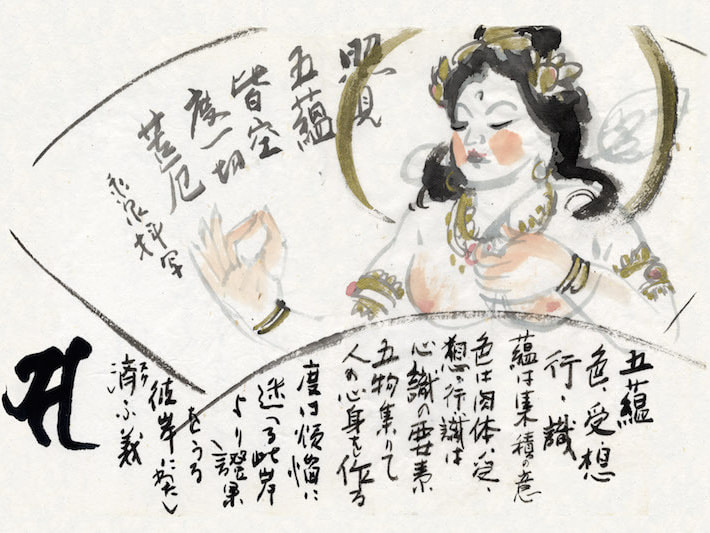 照見
五蘊
皆空
度一切
苦厄
五蘊
色、受、想
行、識
蘊は集積の意
色は肉体、受、
想、行、識は
心識の要素
五物集りて
人の心身を作る
度は煩悩に
迷へる此岸
より證果
をうる
彼岸にわたし
済ふ義